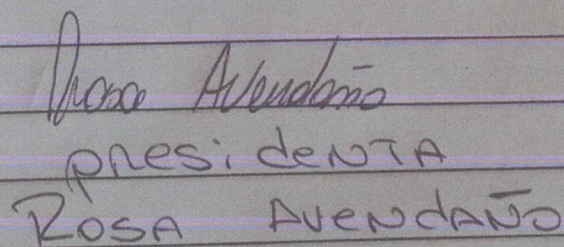 Rosa Avendaño
presidenta
Rosa Avendaño